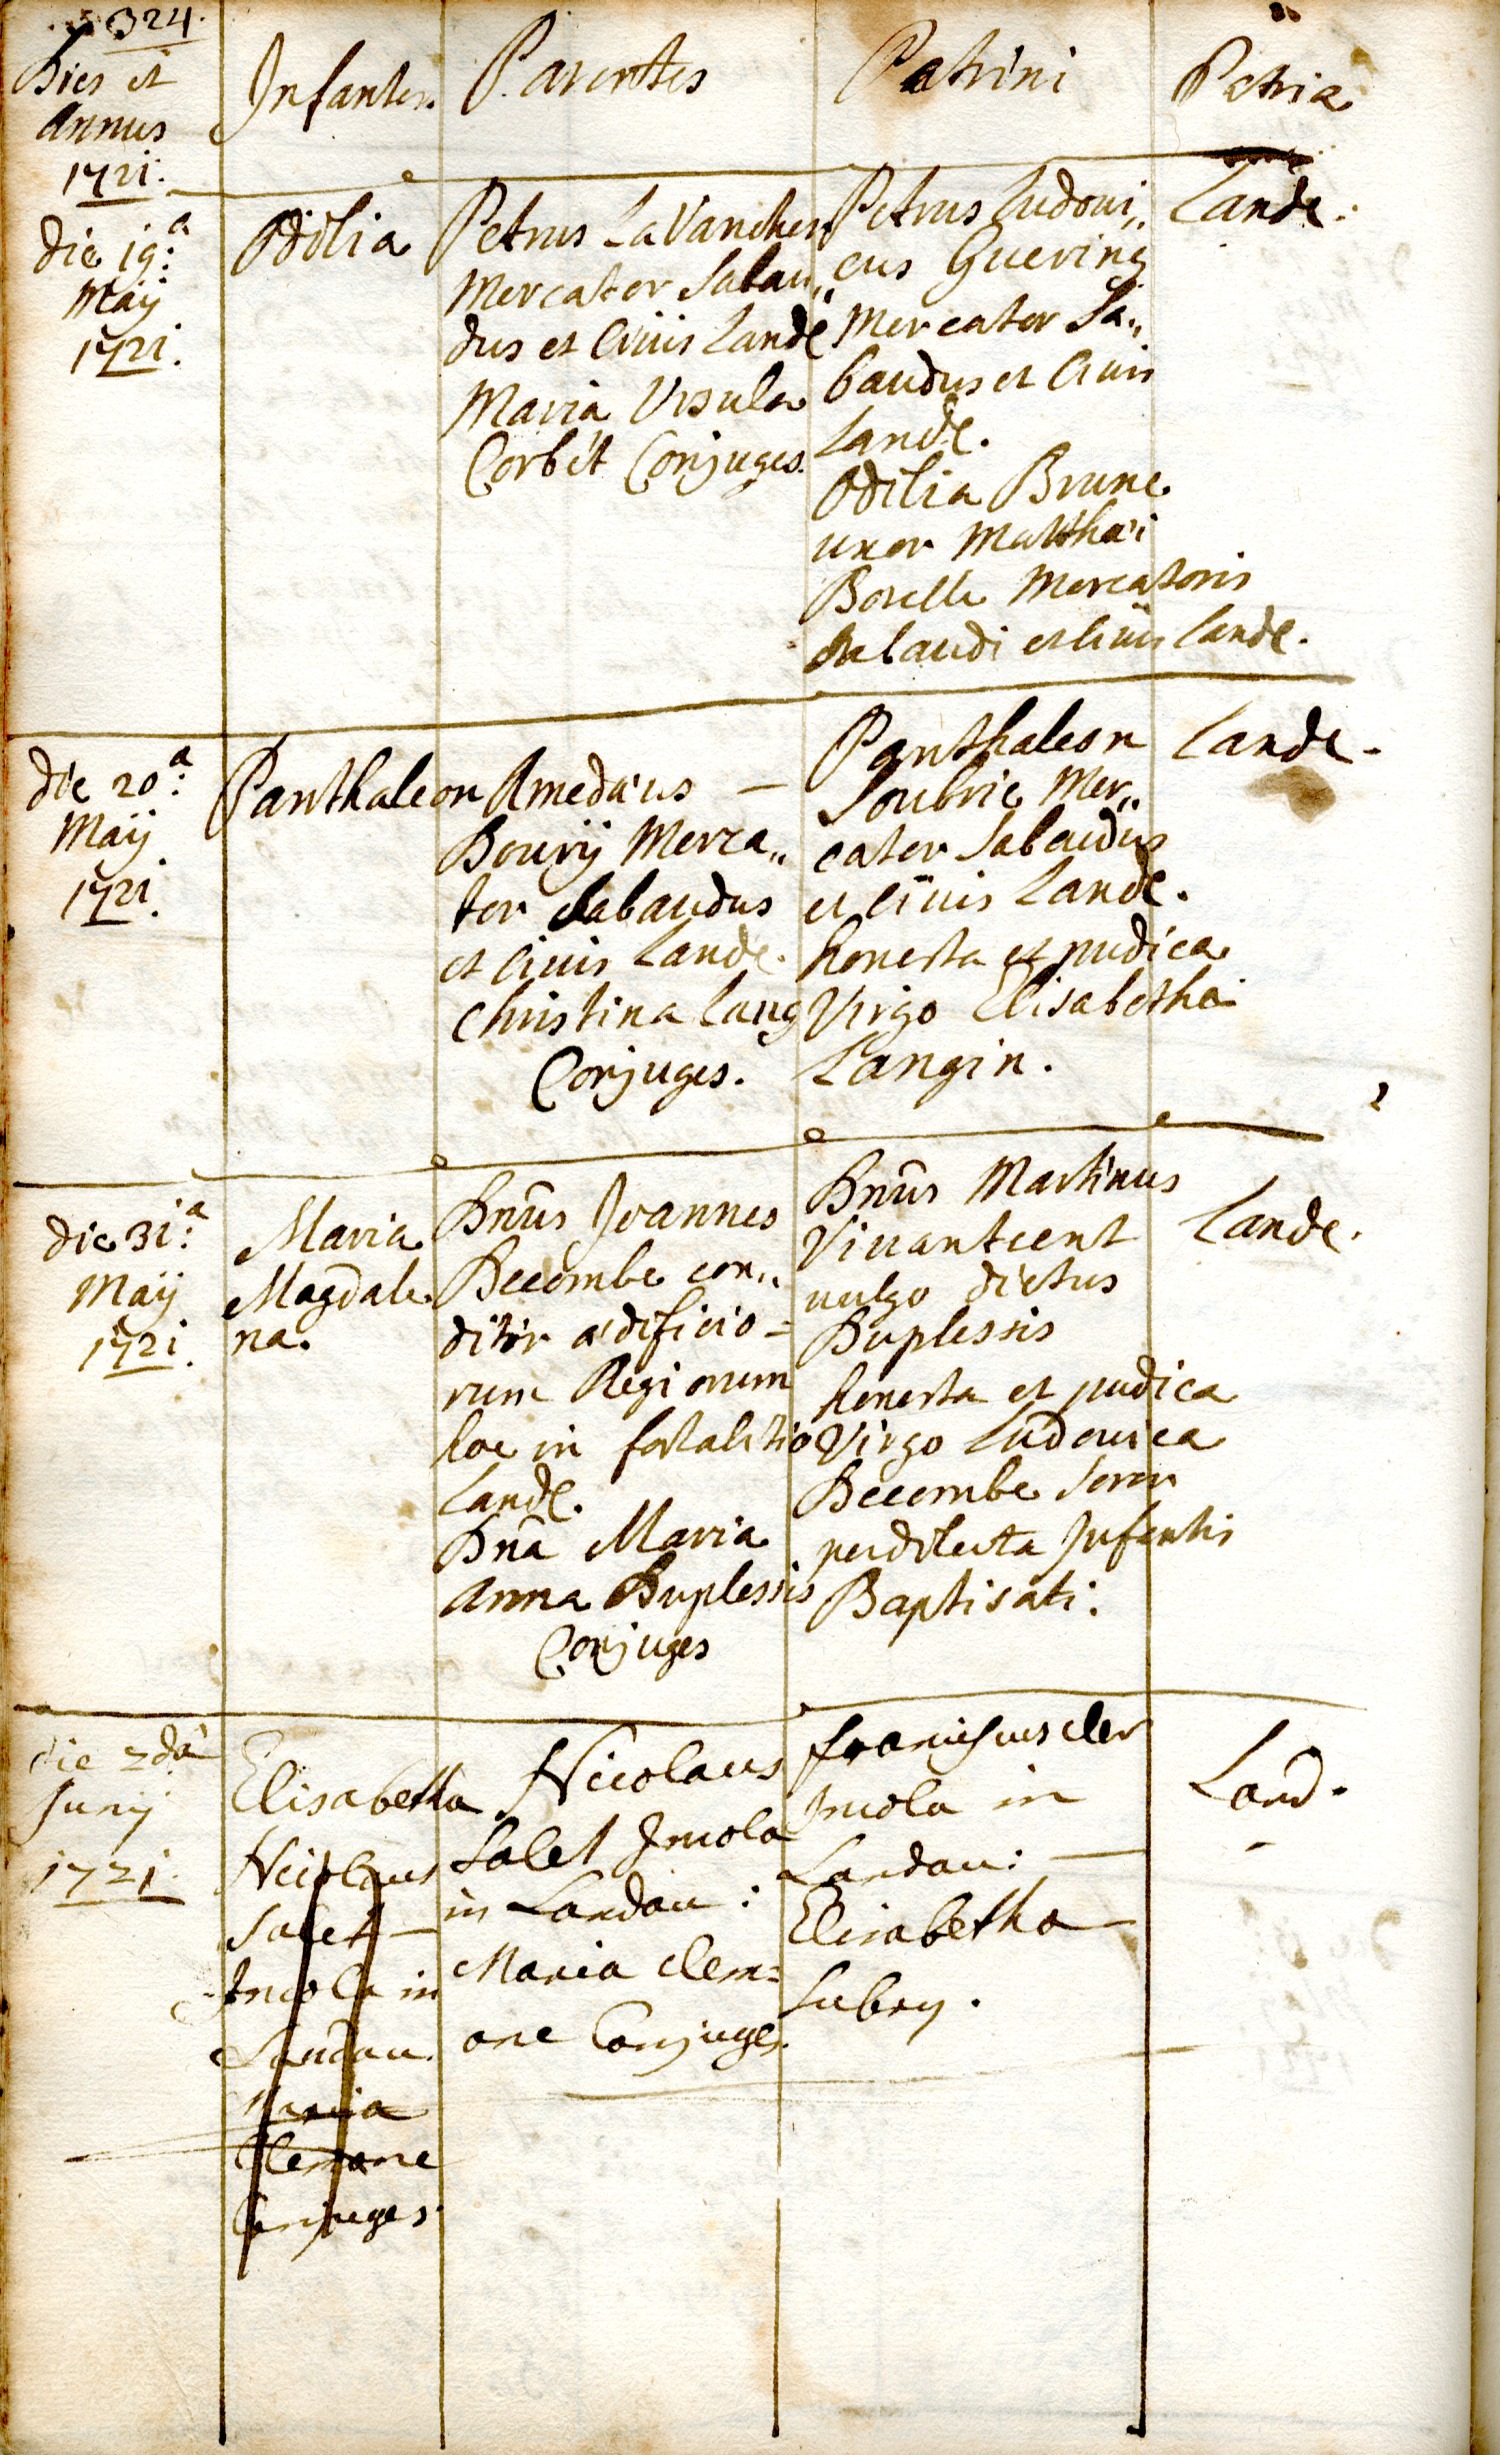 324.
Dies et
Annus
1721.
Infantes.
Parentes
Patrini
Patria
die 19.a
Maÿ
1721.
Odilia
Petrus LaVancher
Mercator Sabau„
dus et Civis Landę
Maria Ursula
Corbét Conjuges.
Petrus Ludovi„
cus Guering
Mercator Sa„
baudus et Civis
Landę.
Odilia Brune
uxor Matthæi
Borelle Mercatoris
Sabaudi et Civis Landę.
Lande.
die 20.a
Maÿ
1721.
Panthaleon
Amedæus —
Bourÿ Merca„
tor Sabaudus
et Civis Landę.
Christina Lang
Conjuges.
Panthaleon
Soubrie Mer„
cator Sabaudus
et Civis Landę.
honesta et pudica
Virgo Elisabetha
Langin.
Lande.
die 31.a
Maÿ
1721.
Maria
Magdale
na.
Dnūs Joannes
Decombe con„
ditor ædificio=
rum Regiorum
hoc in fortalitio
Landę.
Dnā Maria
Anna Duplessis
Conjuges
Dnūs Martinus
vulgo dictus
Duplessis
honesta et pudica
Virgo Ludovica
Decombe Soror
perdilecta Infantis
Baptisati:
Lande.
die 2da
Junÿ
1721.
Elisabetha
Nicolaus
Salet —
Incola in
Landau.
Maria
Clemone
Conjuges.
Nicolaus
Salet Incola
in Landau:
Maria Clem=
one Conjuges.
Franciscus cler
Incola in
Landau: —
Elisabetha —
Lubry.
Land.